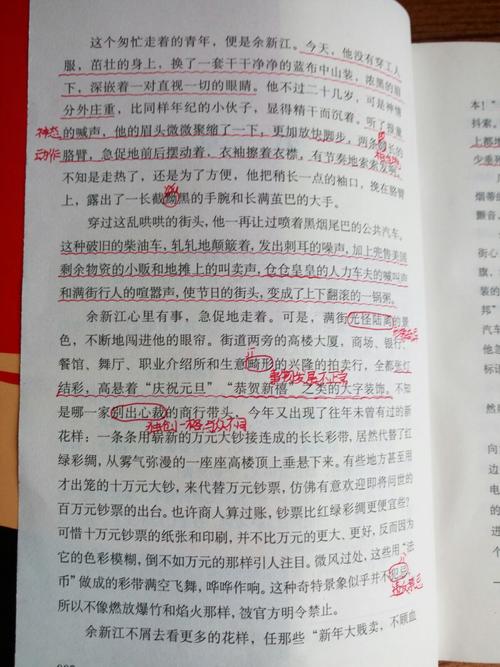 这个匆忙走着的青年，便是余新江。今天，他没有穿工人
服，茁壮的身上，换了一套干干净净的蓝布中山装，浓黑的眉
下，深嵌着一对直视一切的眼睛。他不过二十几岁，可是神情
分外庄重，比同样年纪的小伙子，显得精干而沉着。听了报童
的喊声，他的眉头微微聚缩了一下，更加放快脚步，两条
胳臂，急促地前后摆动着，衣袖擦着衣襟，有节奏地索索发响。
不知是走热了，还是为了方便，他把稍长一点的袖口，挽在胳臂
上，露出了一长截黑的手腕和长满茧巴的大手。
穿过这乱哄哄的街头，他一再让过喷着黑烟尾巴的公共汽车。
这种破旧的柴油车，轧轧地颠簸着，发出刺耳的噪声，加上兜售美国
剩余物资的小贩和地摊上的叫卖声，仓仓皇皇的人力车夫的喊叫声
和满街行人的喧嚣声，使节日的街头，变成了上下翻滚的一锅粥。
余新江心里有事，急促地走着。可是，满街光怪陆离的景
色，不断地闯进他的眼帘。街道两旁的高楼大厦，商场、银行、
餐馆、舞厅、职业介绍所和生意畸形的兴隆的拍卖行，全都张灯
结彩，高悬着“庆祝元旦”“恭贺新禧”之类的大字装饰。不知
是哪一家别出心裁的商行带头，今年又出现了往年未曾有过的新
花样：一条条用崭新的万元大钞接连成的长长彩带，居然代替了红
绿彩绸，从雾气弥漫的一座座高楼顶上垂悬下来。有些地方甚至用
才出笼的十万元大钞，来代替万元钞票，仿佛有意欢迎即将问世的
百万元钞票的出台。也许商人算过账，钞票比红绿彩绸更便宜些？
可惜十万元钞票的纸张和印刷，并不比万元的更大、更好，反而因为
它的色彩模糊，倒不如万元的那样引人注目。微风过处，这些用“法
币”做成的彩带满空飞舞，哗哗作响。这种奇特景象似乎并不犯忌，
所以不像燃放爆竹和焰火那样，被官方明令禁止。
余新江不屑去看更多的花样，任那些“新年大贱卖，不顾血
神态
动作